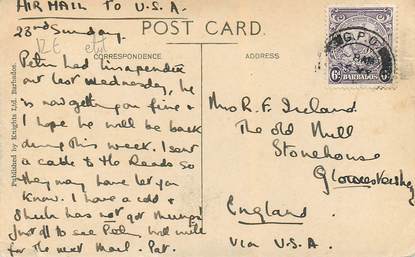 AIR MAIL TO U.S.A.
23rd Sunday.
POST CARD.
CORRESPONDENCE.
ADDRESS
Peter had his apendix
out last Wednesday, he
is now getting on fine &
I hope he will be back
during this week. I sent
a cable to the Reads so
they may have let you
know. I have a cold &
Sheila has not got Mumps!
Just off to see Peter, will write
for the next Mail. Pat.
Published by Knights Ltd. Barbados.
G.P.O.
BARBADOS
6D
Mrs R. F. Ireland
The Old Mill
Stonehouse
Gloucestershire
England.
Via U.S.A.